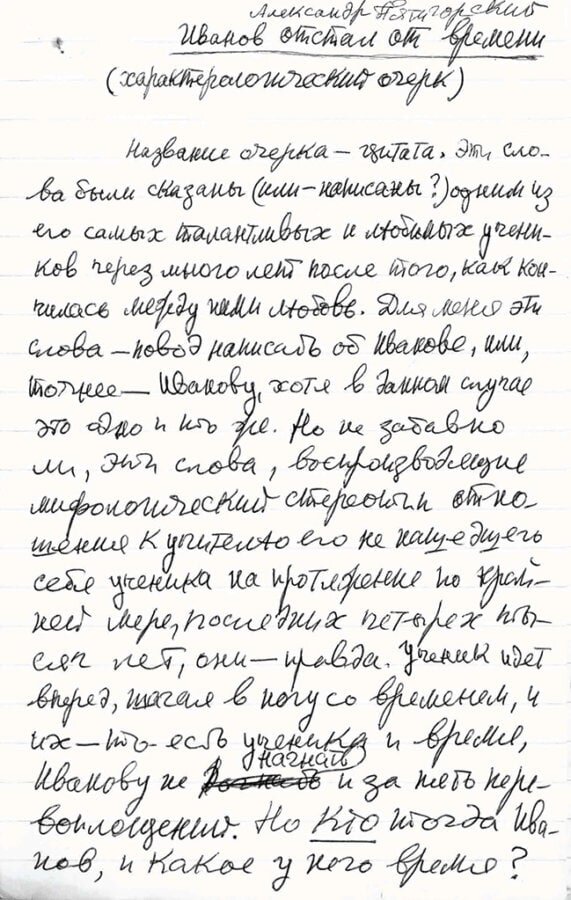 Александр Пятигорский
Иванов отстал от времени
(характерологический очерк)
Название очерка — цитата. Эти сло-
ва были сказаны (или — написаны?) одним из
его самых талантливых и любимых учени-
ков через много лет после того, как кон-
чилась между ними любовь. Для меня эти
слова — повод написать об Иванове, или,
точнее — Иванову, хотя в данном случае
это одно и то же. Но не забавно
ли, эти слова, воспроизводящие
мифологический стереотип отно-
шения к учителю его не нашедшего
себе ученика на протяжение по край-
ней мере, последних четырех ты-
сяч лет, они — правда. Ученик идет
вперед, шагая в ногу со временем, и
их — то есть ученика и время,
нагнать
Иванову не и за пять пере-
воплощений. Но кто тогда Ива-
нов, и какое у него время?